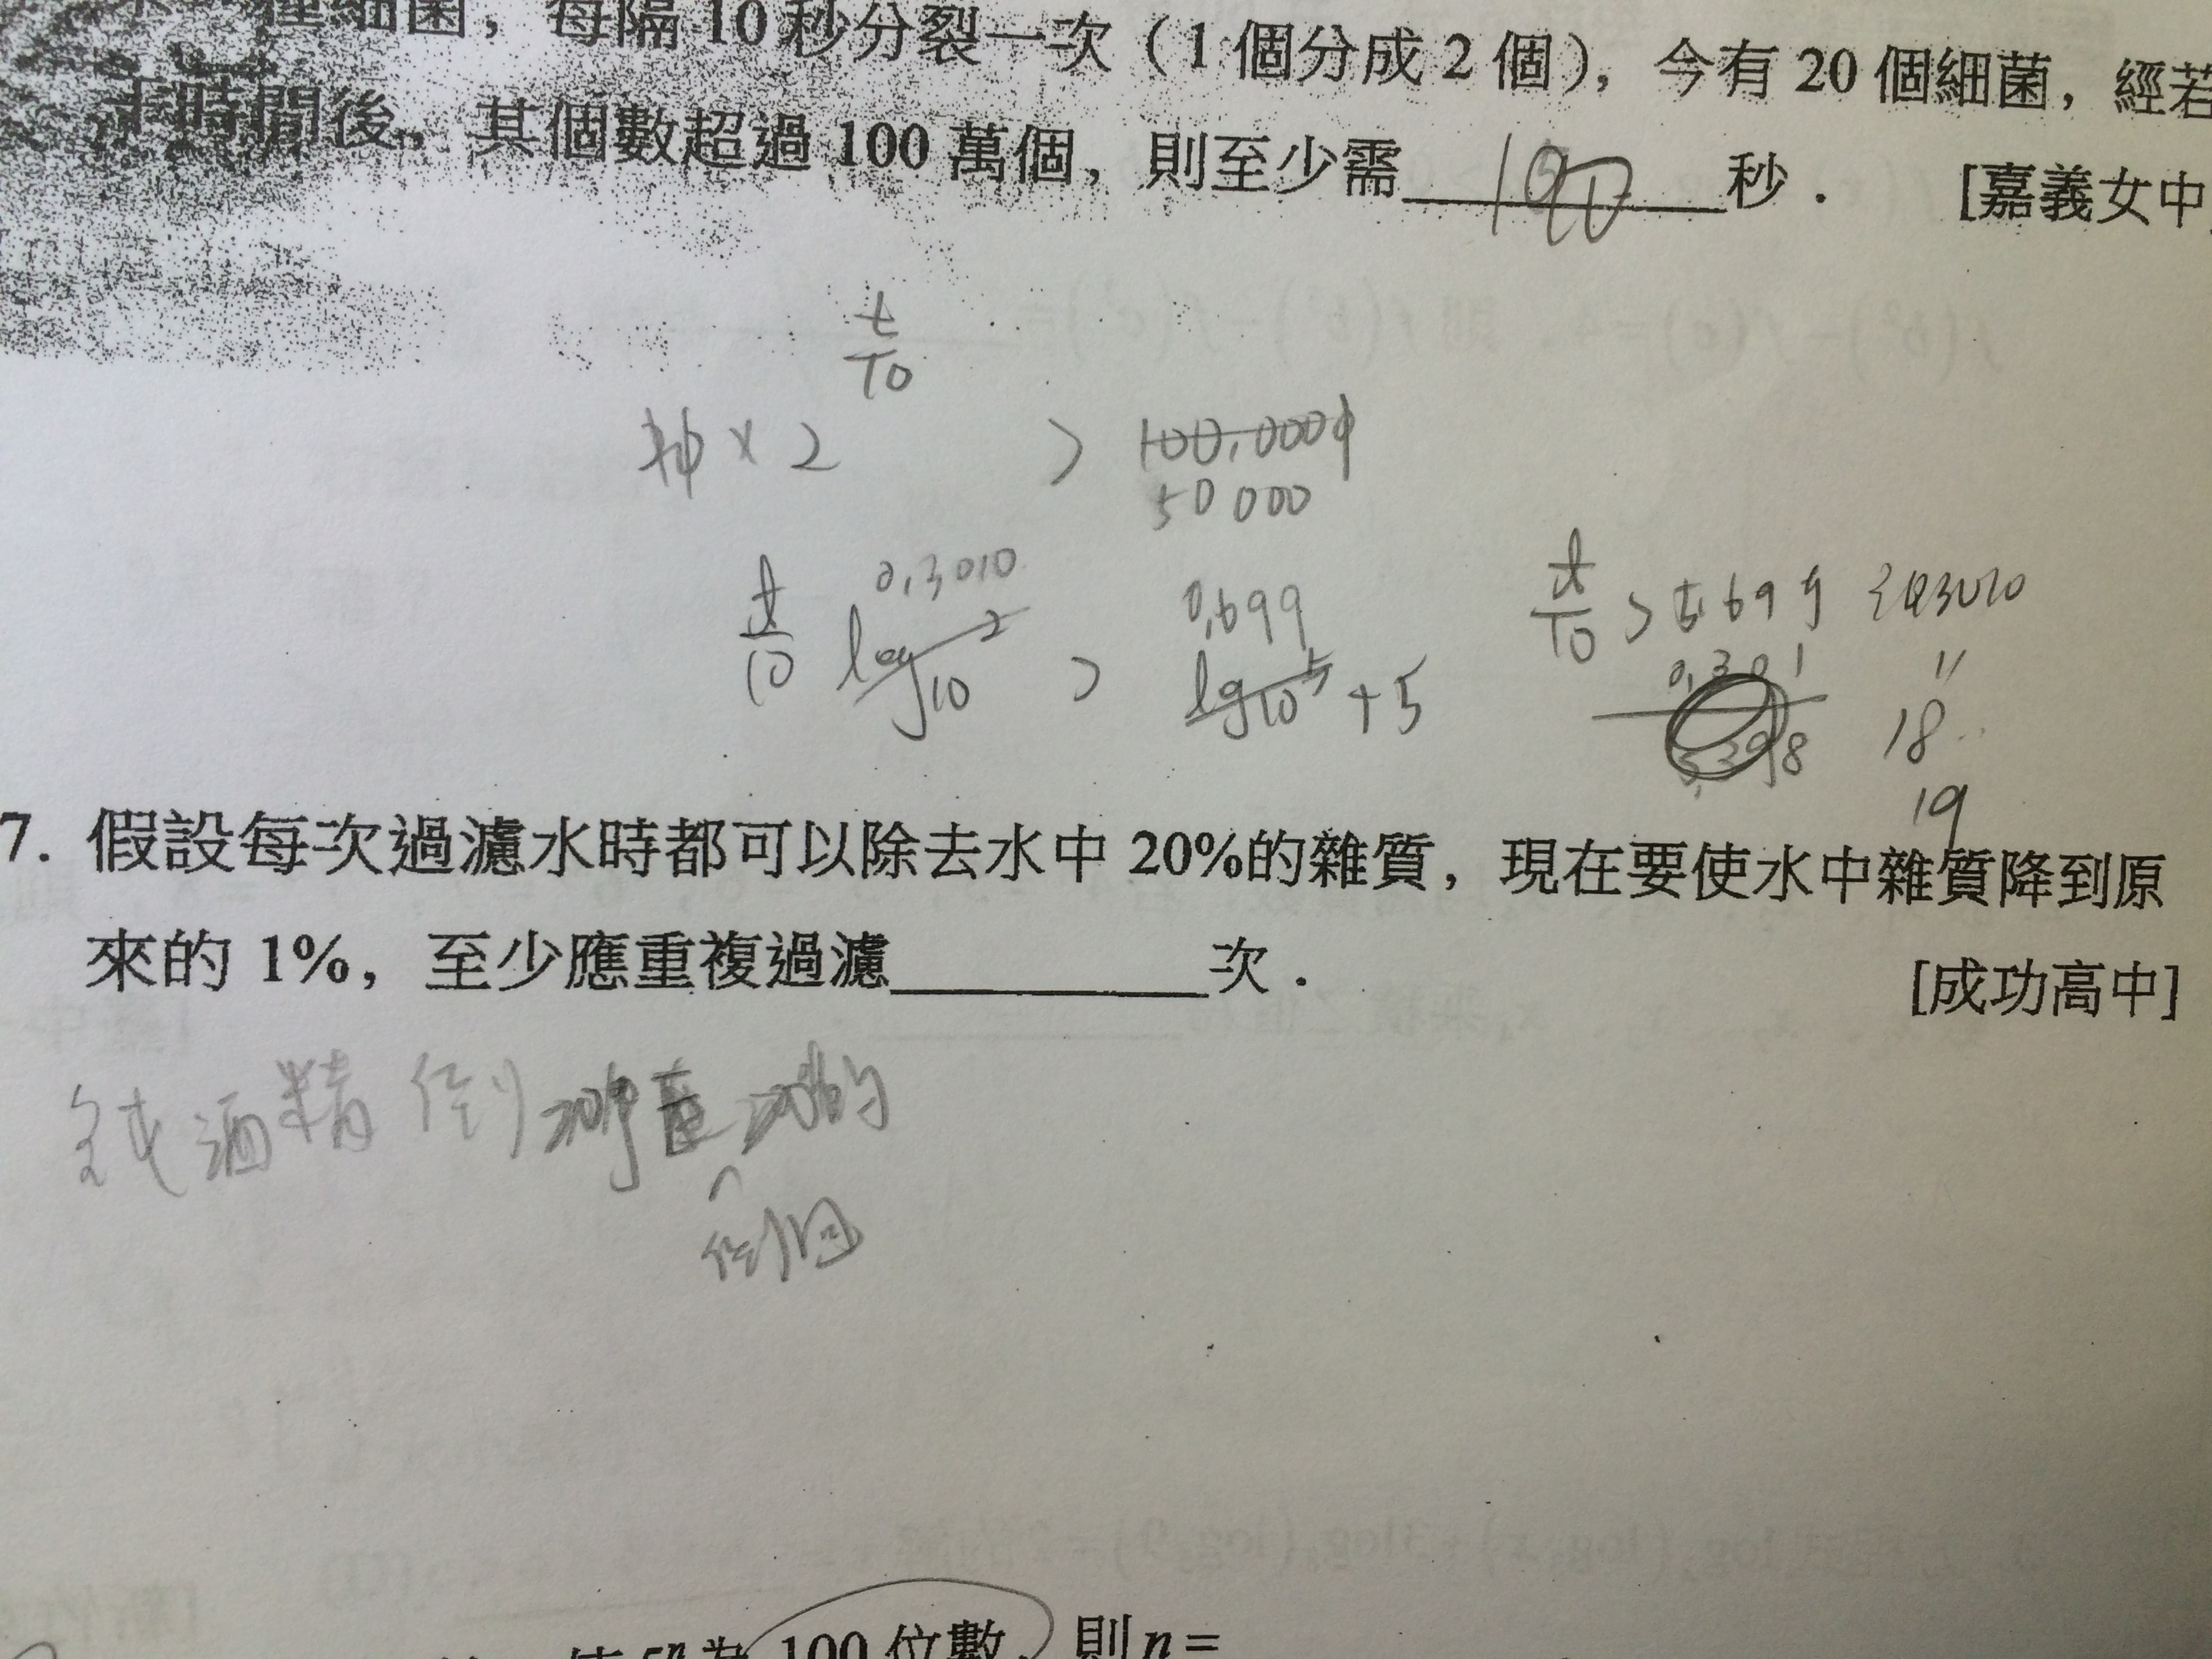 種細菌，每隔 10 秒分裂一次（1 個分成 2 個），今有 20 個細菌，經若
干時間後，其個數超過 100 萬個，則至少需 190 秒．[嘉義女中]
t/10
× 2 > 100,0000
50000
t/10 log10 2 > log10 5 + 5
0.3010 0.699
t/10 > 5.699
0.301
18..
19
7. 假設每次過濾水時都可以除去水中 20%的雜質，現在要使水中雜質降到原
來的 1%，至少應重複過濾＿＿＿次．[成功高中]
純酒精 倒 的
倒回
100 位數，則 n =